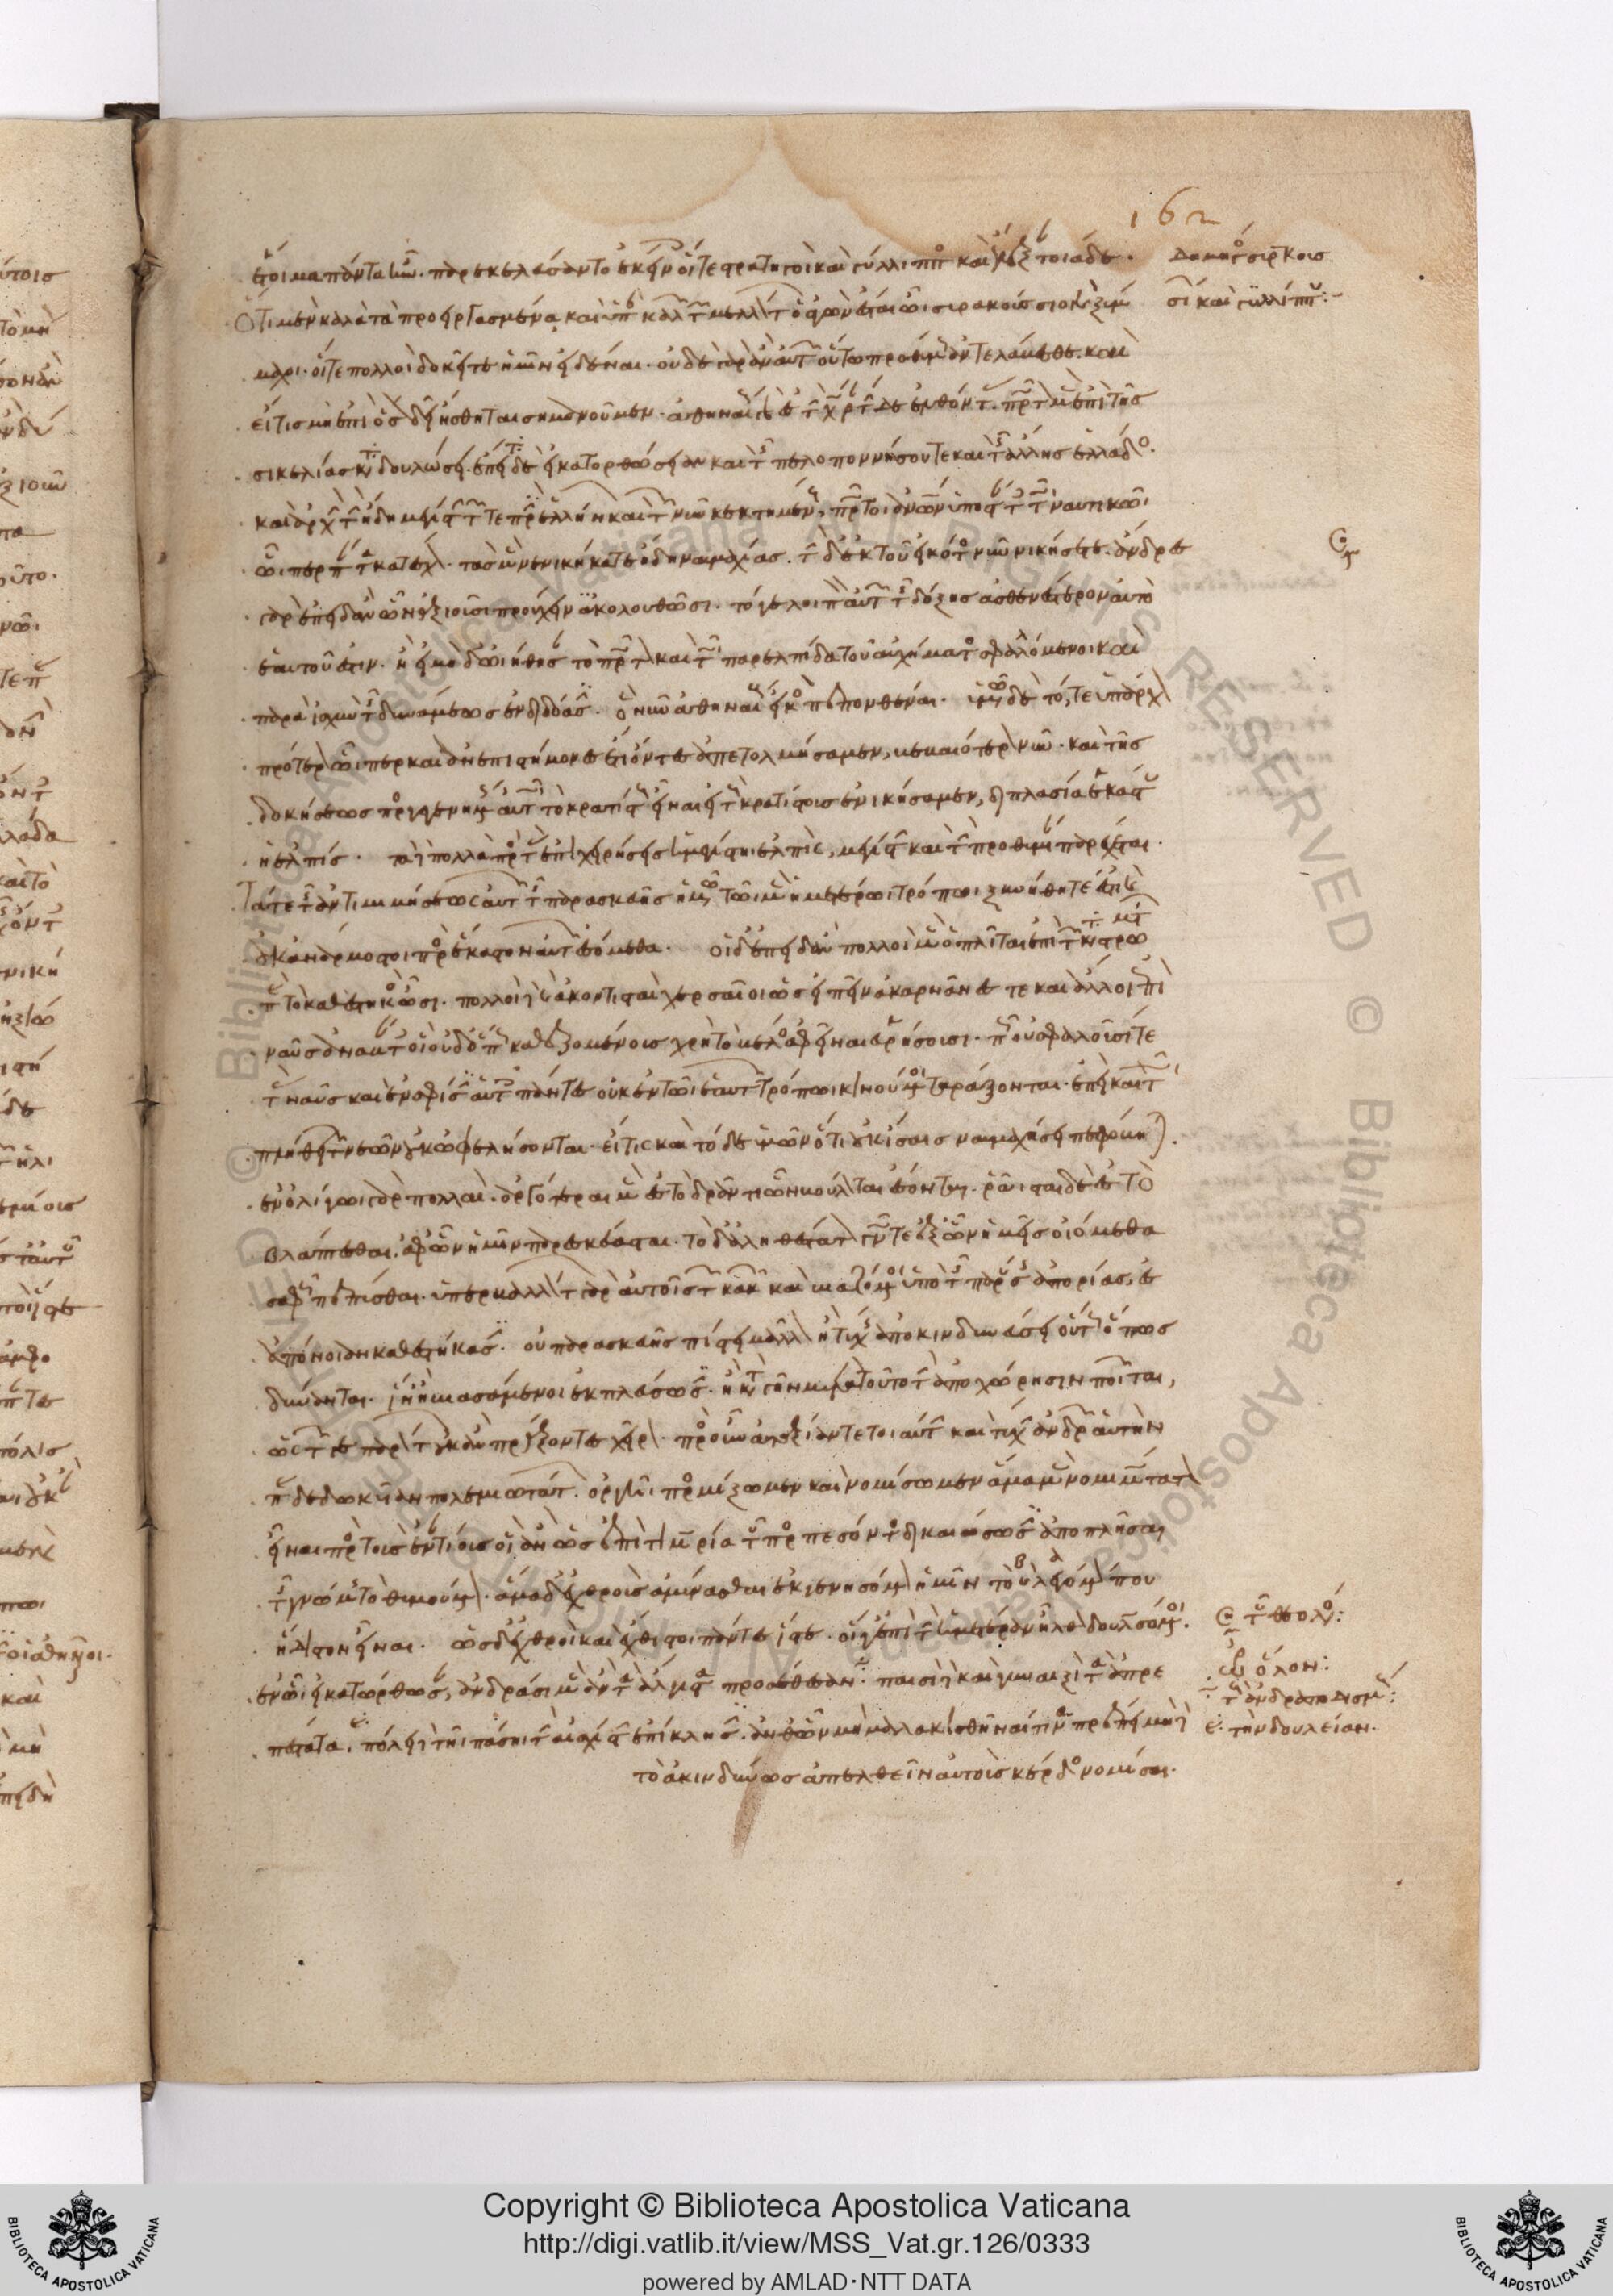 162
ἕτοιμα πάντα ἦν. παρεκελεύσαντο ἐκείνοις οἵ τε στρατηγοὶ καὶ γύλιππος καὶ ἔλεξαν τοιάδε.
Ὅτι μὲν καλὰ τὰ προειργασμένα καὶ ὑπὲρ καλῶν τῶν μελλόντων ὁ ἀγὼν ἔσται ὦι συρακούσιοι καὶ ξύμ
μαχοι. οἵ τε πολλοὶ δοκεῖτε ἡμῖν εἰδέναι. οὐδὲ γὰρ ἂν αὐτῶν οὕτω προθύμως ἀντελάβεσθε. καὶ
εἴ τις μὴ ἐπὶ ὅσον δεῖ ἤσθηται σημανοῦμεν. ἀθηναίους γὰρ ἐς τὴν χώραν τήνδε ἐλθόντας. πρῶτον μὲν ἐπὶ τῆς
σικελίας καταδουλώσει. ἔπειτα δὲ εἰ κατορθώσειαν καὶ τῆς πελοποννήσου τε καὶ τῆς ἄλλης ἑλλάδος.
καὶ ἀρχὴν τὴν ἤδη μεγίστην τῶν τε πρὶν ἑλλήνων καὶ τῶν νῦν κεκτημένους, πρῶτοι ἀνθρώπων ὑποστάντες τῶι ναυτικῶι
ὧιπερ πάντα κατέσχον. τὰς μὲν νενικήκατε ἤδη ναυμαχίας. τὴν δ' ἐκ τοῦ εἰκότος νῦν νικήσετε. ἄνδρες
γὰρ ἐπειδὰν ὧι ἀξιοῦσι προύχειν ἀκολουθῶσι. τό γε λοιπὸν αὐτῶν τῆς δόξης ἀσθενέστερον αὐτὸ
ἑαυτοῦ ἐστιν. ἢ εἰ μηδ' ὠιήθησαν τὸ πρῶτον καὶ τῶι παρ' ἐλπίδα τοῦ αὐχήματος σφαλλόμενοι καὶ
παρὰ ἰσχὺν τῆς δυνάμεως ἐνδιδόασιν. ὃ νῦν ἀθηναίους εἰκὸς πεπονθέναι. ἡμῶν δὲ τό, τε ὑπάρχον
πρότερον ὧιπερ καὶ ἀνεπιστήμονες ἔτι ὄντες ἀπετολμήσαμεν, βεβαιότερον νῦν. καὶ τῆς
δοκήσεως προσγεγενημένης αὐτῶι τὸ κρατίστους εἶναι εἰ τοὺς κρατίστους ἐνικήσαμεν, διπλασία ἑκάστου
ἡ ἐλπίς. τὰ δὲ πολλὰ πρὸς τὰς ἐπιχειρήσεις ἡ μεγίστη ἐλπίς, μεγίστην καὶ τὴν προθυμίαν παρέχεται.
Τά τε τῆς ἀντιμιμήσεως αὐτῶν τῆς παρασκευῆς ἡμῶν τῶι μὲν ἡμετέρωι τρόπωι ξυνήθη τέ ἐστι
καὶ οὐκ ἀνάρμοστοι πρὸς ἕκαστον αὐτῶν ἐσόμεθα. οἱ δ' ἐπειδὰν πολλοὶ μὲν ὁπλῖται ἐπὶ τῶν καταστρωμάτων
παρὰ τὸ καθεστηκὸς ὦσι. πολλοὶ δὲ καὶ ἀκοντισταὶ χερσαῖοι ὡς εἰπεῖν ἀκαρνᾶνές τε καὶ ἄλλοι ἐπὶ
ναῦς ἀναβάντες οἳ οὐδ' ὅπως καθεζομένοις χρὴ τὸ βέλος ἀφεῖναι εὑρήσουσι. πῶς οὐ σφαλοῦσί τε
τὰς ναῦς καὶ ἐν σφίσιν αὐτοῖς πάντες οὐκ ἐν τῶι ἑαυτῶν τρόπωι κινούμενοι ταράξονται. ἐπεὶ καὶ τῶι
πλήθει τῶν νεῶν οὐκ ὠφελήσονται. εἴ τις καὶ τόδε ὑμῶν ὅτι οὐκ ἴσαις ναυμαχήσει πεφόβηται.
ἐν ὀλίγωι γὰρ πολλαὶ. ἀργότεραι μὲν ἐς τὸ δρᾶν τι ὧν βούλονται ἔσονται. ῥᾶισται δὲ ἐς τὸ
βλάπτεσθαι. ἀφ' ὧν ἡμῖν παρεσκεύασται. τὸ δ' ἀληθέστατον γνῶτε ἐξ ὧν ἡμεῖς οἰόμεθα
σαφῶς πεπύσθαι. ὑπερβαλλόντων γὰρ αὐτοῖς τῶν κακῶν καὶ βιαζόμενοι ὑπὸ τῆς παρούσης ἀπορίας, ἐς
ἀπόνοιαν καθεστήκασιν. οὐ παρασκευῆς πίστει μᾶλλον ἢ τύχης ἀποκινδυνεύσει οὕτως ὅπως
δύνανται. ἵν' ἢ βιασάμενοι ἐκπλεύσωσιν. ἢ κατὰ γῆν μετὰ τοῦτο τὴν ἀποχώρησιν ποιῶνται,
ὡς τῶν γε παρόντων οὐκ ἂν πράξοντες χεῖρον. πρὸς οὖν ἀταξίαν τε τοιαύτην καὶ τύχην ἀνδρῶν ἑαυτὴν
παραδεδωκυῖαν πολεμιωτάτων. ὀργῆι προσμίξωμεν καὶ νομίσωμεν ἅμα μὲν νομιμώτατον
εἶναι πρὸς τοὺς ἐναντίους οἳ ἂν ὡς ἐπὶ τιμωρίαι τοῦ προσπεσόντος δικαιώσωσιν ἀποπλῆσαι
τῆς γνώμης τὸ θυμούμενον. ἅμα δ' ἐχθροὺς ἀμύνασθαι ἐκγενησόμενον ἡμῖν τὸ λεγόμενον που
ἥδιστον εἶναι. ὡς δ' ἐχθροὶ καὶ ἔχθιστοι πάντες ἴστε. οἵ γε ἐπὶ τὴν ἡμετέραν ἦλθον δουλωσόμενοι.
ἐν ὧι εἰ κατώρθωσαν, ἀνδράσι μὲν ἂν τὰ ἄλγιστα προσέθεσαν. παισὶ δὲ καὶ γυναιξὶ τὰ ἀπρε
πέστατα. πόλει δὲ τῆι πάσηι τὴν αἰσχίστην ἐπίκλησιν. ἀνθ' ὧν μὴ μαλακισθῆναί τινα πρέπει μηδὲ
τὸ ἀκινδύνως ἀπελθεῖν αὐτοὺς κέρδος νομίσαι.
ὅλον:
τὸν ἀνδραποδισμόν:
τὴν δουλείαν.
Copyright © Biblioteca Apostolica Vaticana
http://digi.vatlib.it/view/MSS_Vat.gr.126/0333
powered by AMLAD·NTT DATA
BIBLIOTECA APOSTOLICA VATICANA
BIBLIOTECA APOSTOLICA VATICANA